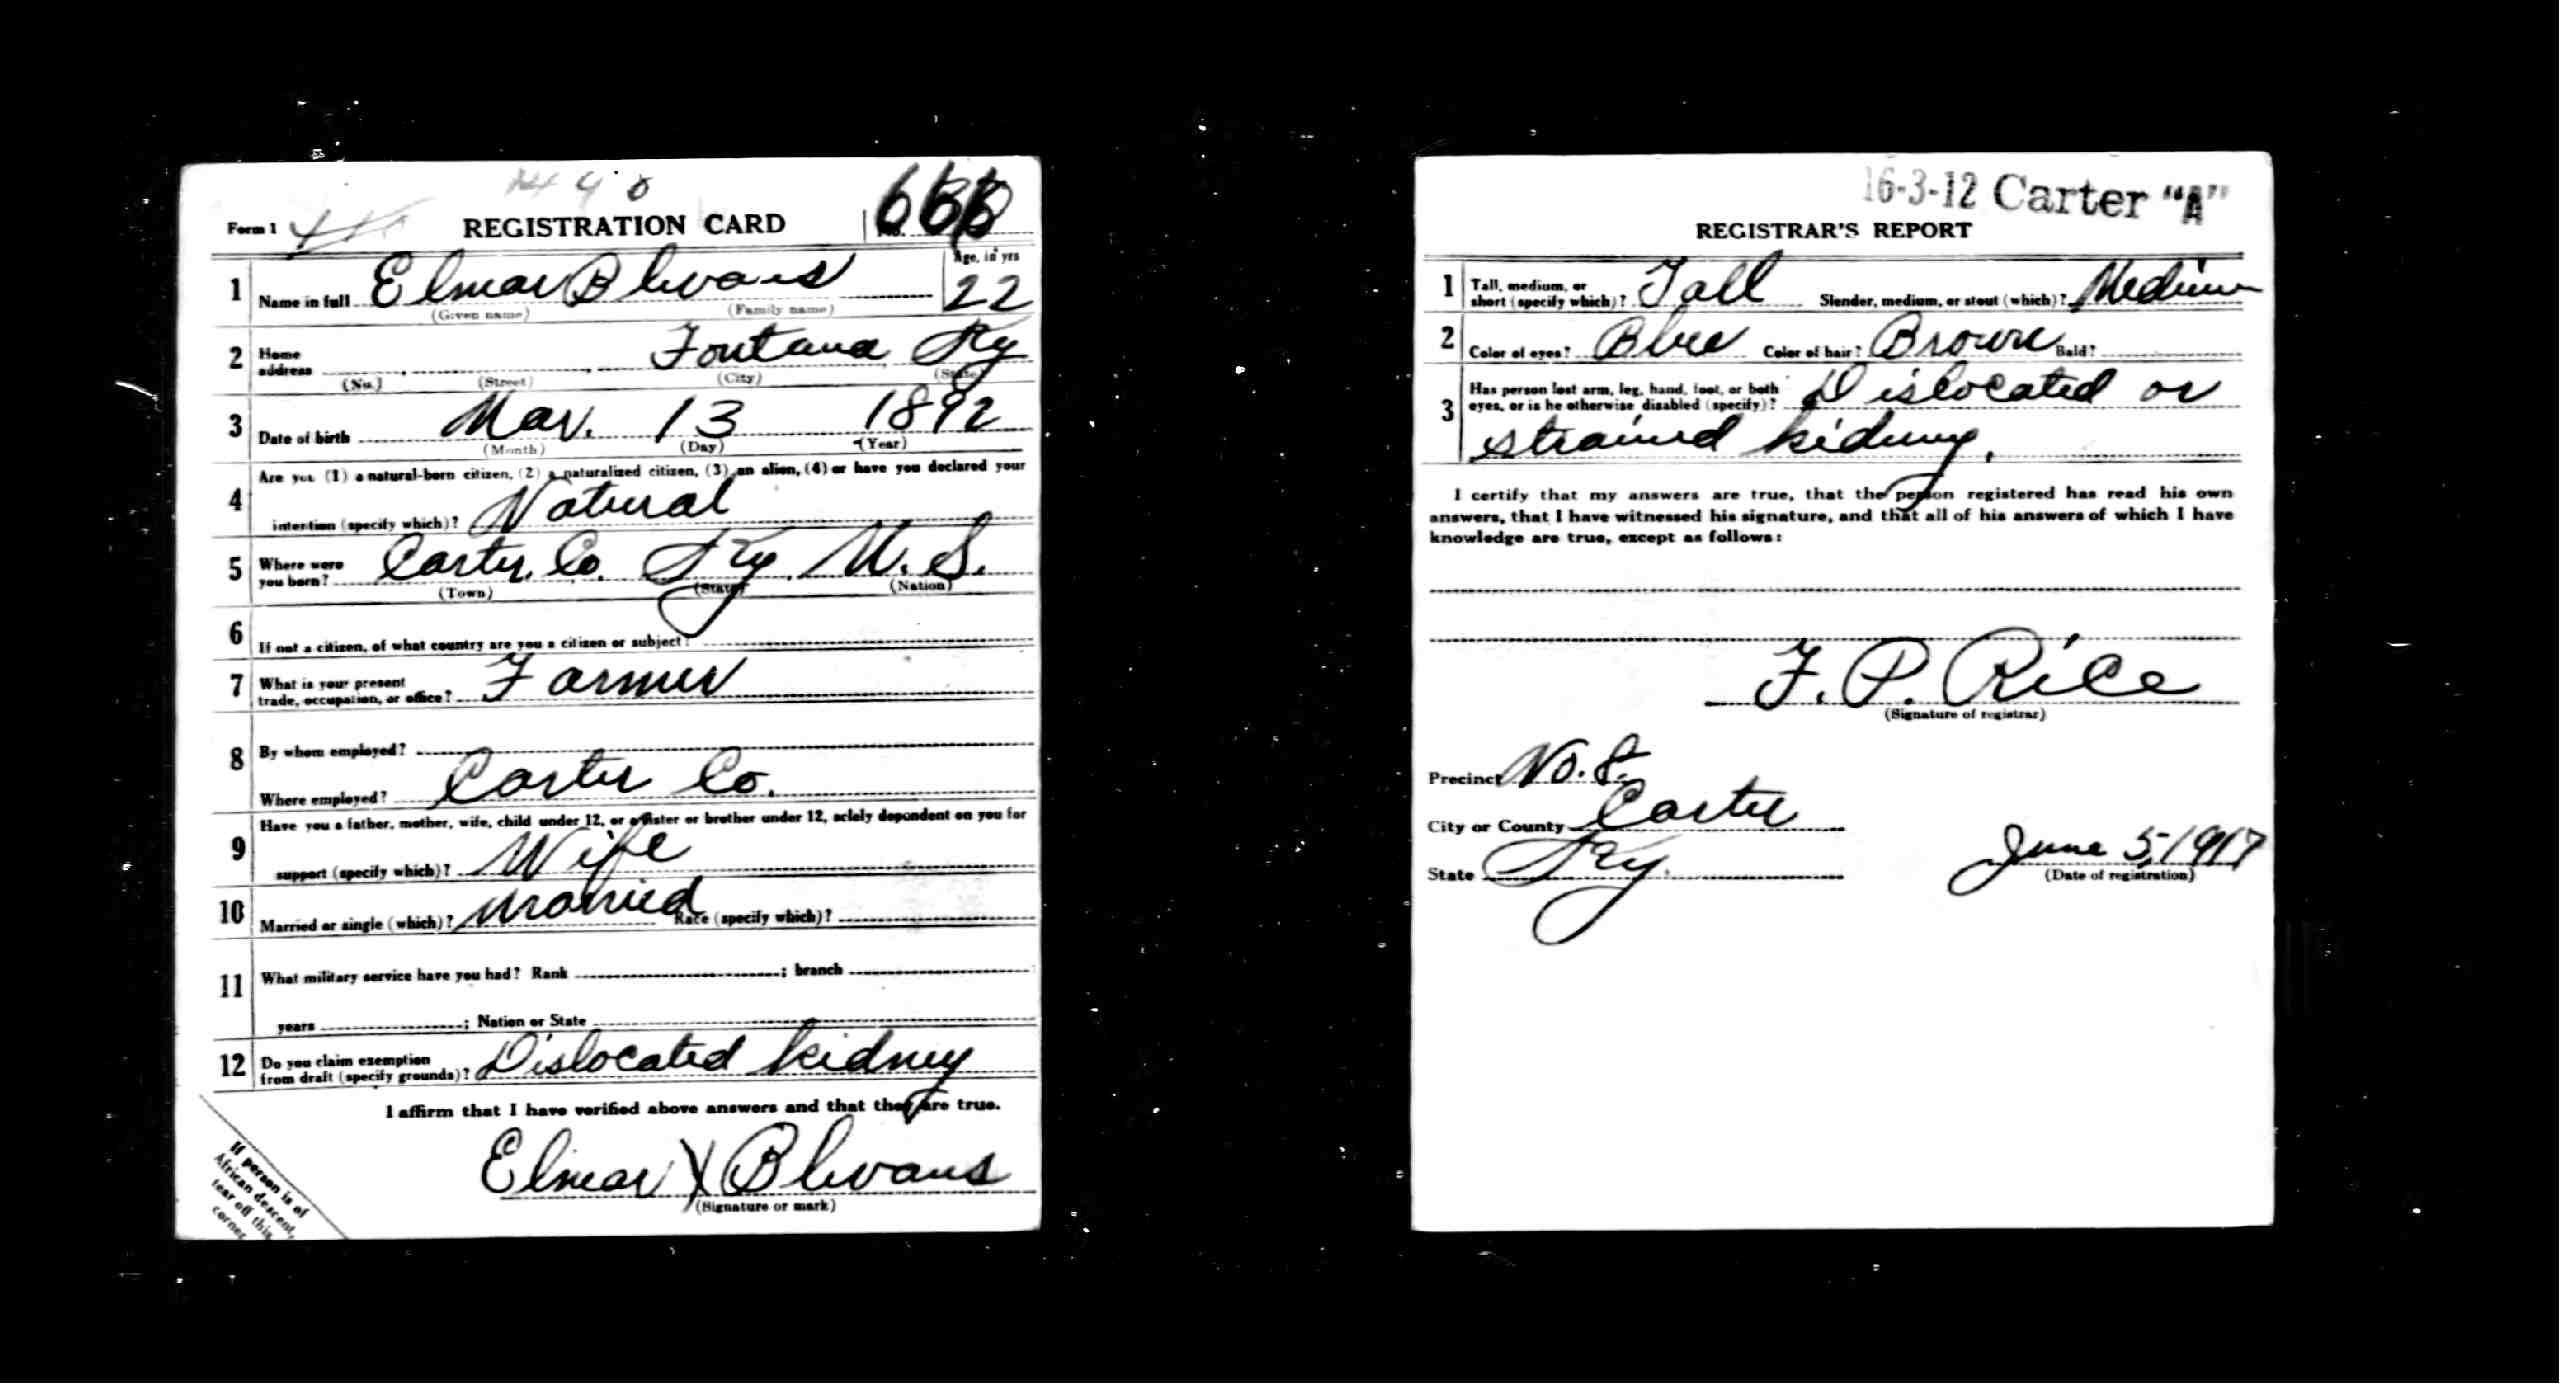 Form 1 REGISTRATION CARD No.
1 Name in full Elmar Blevans Age, in yrs 22
(Given name) (Family name)
2 Home address Fontana Ky
(No.) (Street) (City) (State)
3 Date of birth Mar. 13 1892
(Month) (Day) (Year)
4 Are you (1) a natural-born citizen, (2) a naturalized citizen, (3) an alien, (4) or have you declared your
intention (specify which)? Natural
5 Where were you born? Carter, Co. Ky. U.S.
(Town) (State) (Nation)
6 If not a citizen, of what country are you a citizen or subject?
7 What is your present trade, occupation, or office? Farmer
8 By whom employed?
Where employed? Carter Co.
9 Have you a father, mother, wife, child under 12, or a sister or brother under 12, solely dependent on you for
support (specify which)? Wife
10 Married or single (which)? Married Race (specify which)?
11 What military service have you had? Rank ; branch
years ; Nation or State
12 Do you claim exemption from draft (specify grounds)? Dislocated kidney
I affirm that I have verified above answers and that they are true.
Elmar X Blevans
(Signature or mark)
If person is of
African descent,
tear off this
corner.
16-3-12 Carter "A"
REGISTRAR'S REPORT
1 Tall, medium, or short (specify which)? Tall Slender, medium, or stout (which)? Medium
2 Color of eyes? Blue Color of hair? Brown Bald?
3 Has person lost arm, leg, hand, foot, or both eyes, or is he otherwise disabled (specify)? Dislocated or
strained kidney.
I certify that my answers are true, that the person registered has read his own
answers, that I have witnessed his signature, and that all of his answers of which I have
knowledge are true, except as follows:
F. P. Rice
(Signature of registrar)
Precinct No. 8.
City or County Carter
State Ky. June 5, 1917
(Date of registration)